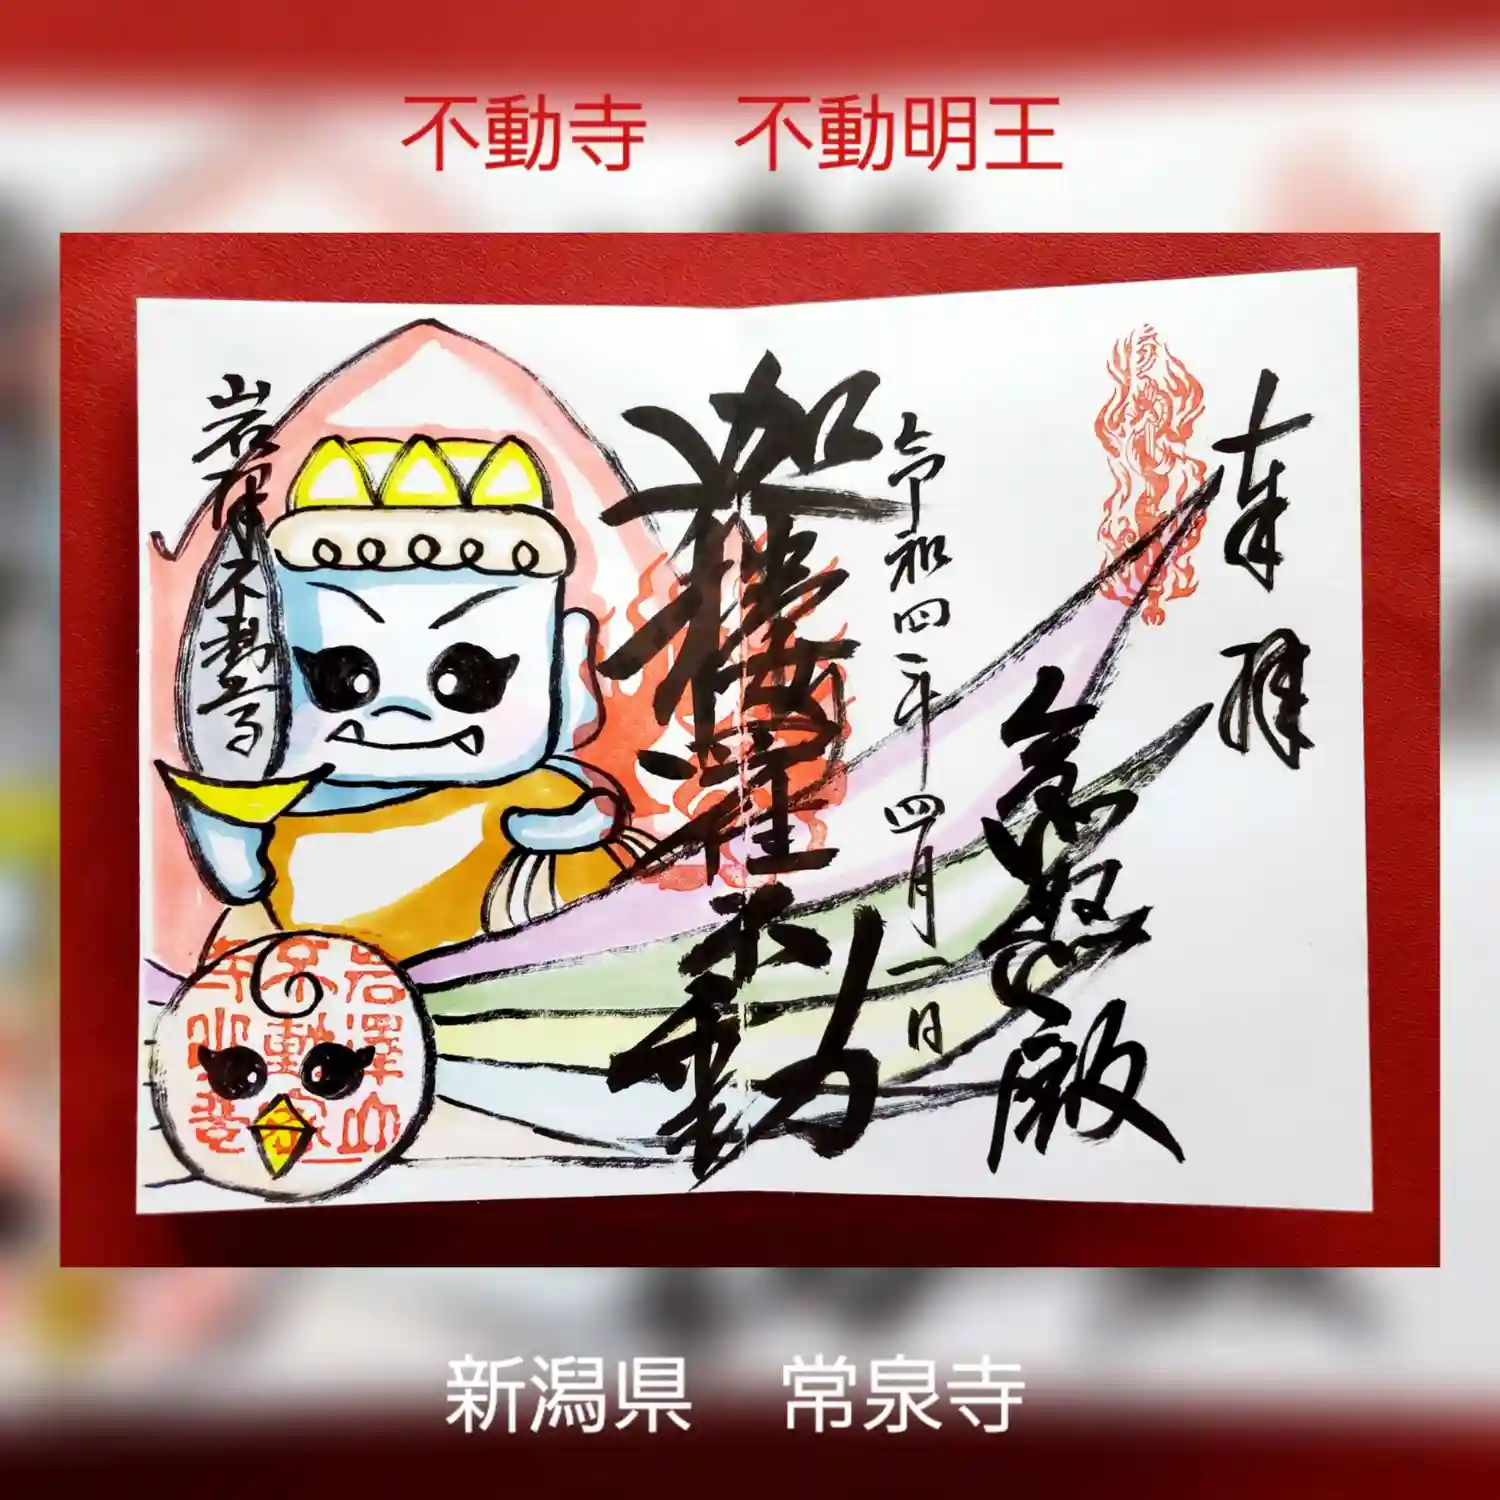 不動寺　不動明王
奉拝
忿怒殿
令和四年四月一日
迦楼羅不動
岩澤不動寺
岩澤山
不動
寺
新潟県　常泉寺